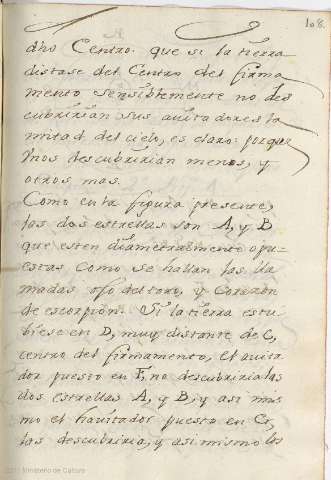 108.
dho Centro: que si la tierra
distase del Centro del firma
mento sensiblemente no des
cubririan sus avitadores la
mitad del cielo, es claro: porque
Unos descubririan menos, y
otros mas.
Como en la figura presente,
las dos estrellas son A, y B
que esten diametralmente opu=
estas Como se hallan las lla
madas ojo del toro, y Corazon
de escorpion. Si la tierra estu
biese en D, muy distante de C,
centro del firmamento, el avita
dor puesto en F, no descubriria las
dos estrellas A, y B; y asi mis
mo el havitador puesto en G,
las descubriria, y asi mismo los
Ministerio de Cultura